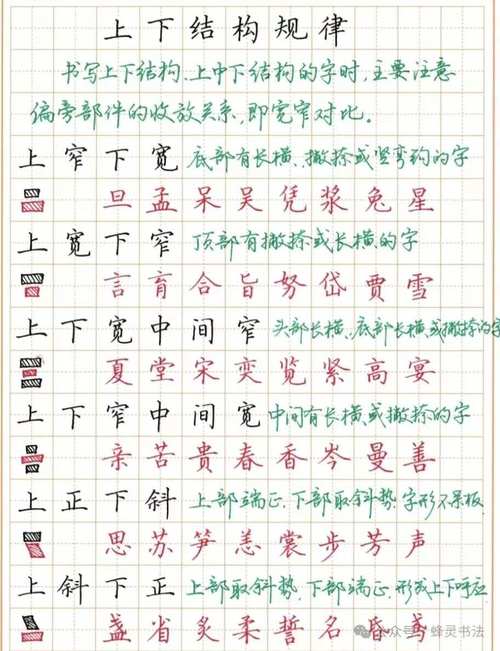 上下结构规律
书写上下结构、上中下结构的字时,主要注意
偏旁部件的收放关系,即宽窄对比。
上窄下宽 底部有长横、撇捺或竖弯钩的字
旦孟呆吴凭浆兔星
上宽下窄 顶部有撇捺或长横的字
言育合旨努岱贾雪
上下宽中间窄 头部长横、底部长横或撇捺的字
夏堂宋奕览紧高宴
上下窄中间宽 中间有长横或撇捺的字
亲苦贵春香岑曼善
上正下斜 上部端正、下部取斜势、字形不呆板
思苏笋恙裳步芳声
上斜下正 上部取斜势、下部端正、形成上下呼应
盏省炙柔誓名昏鸢
公众号 蜂灵书法